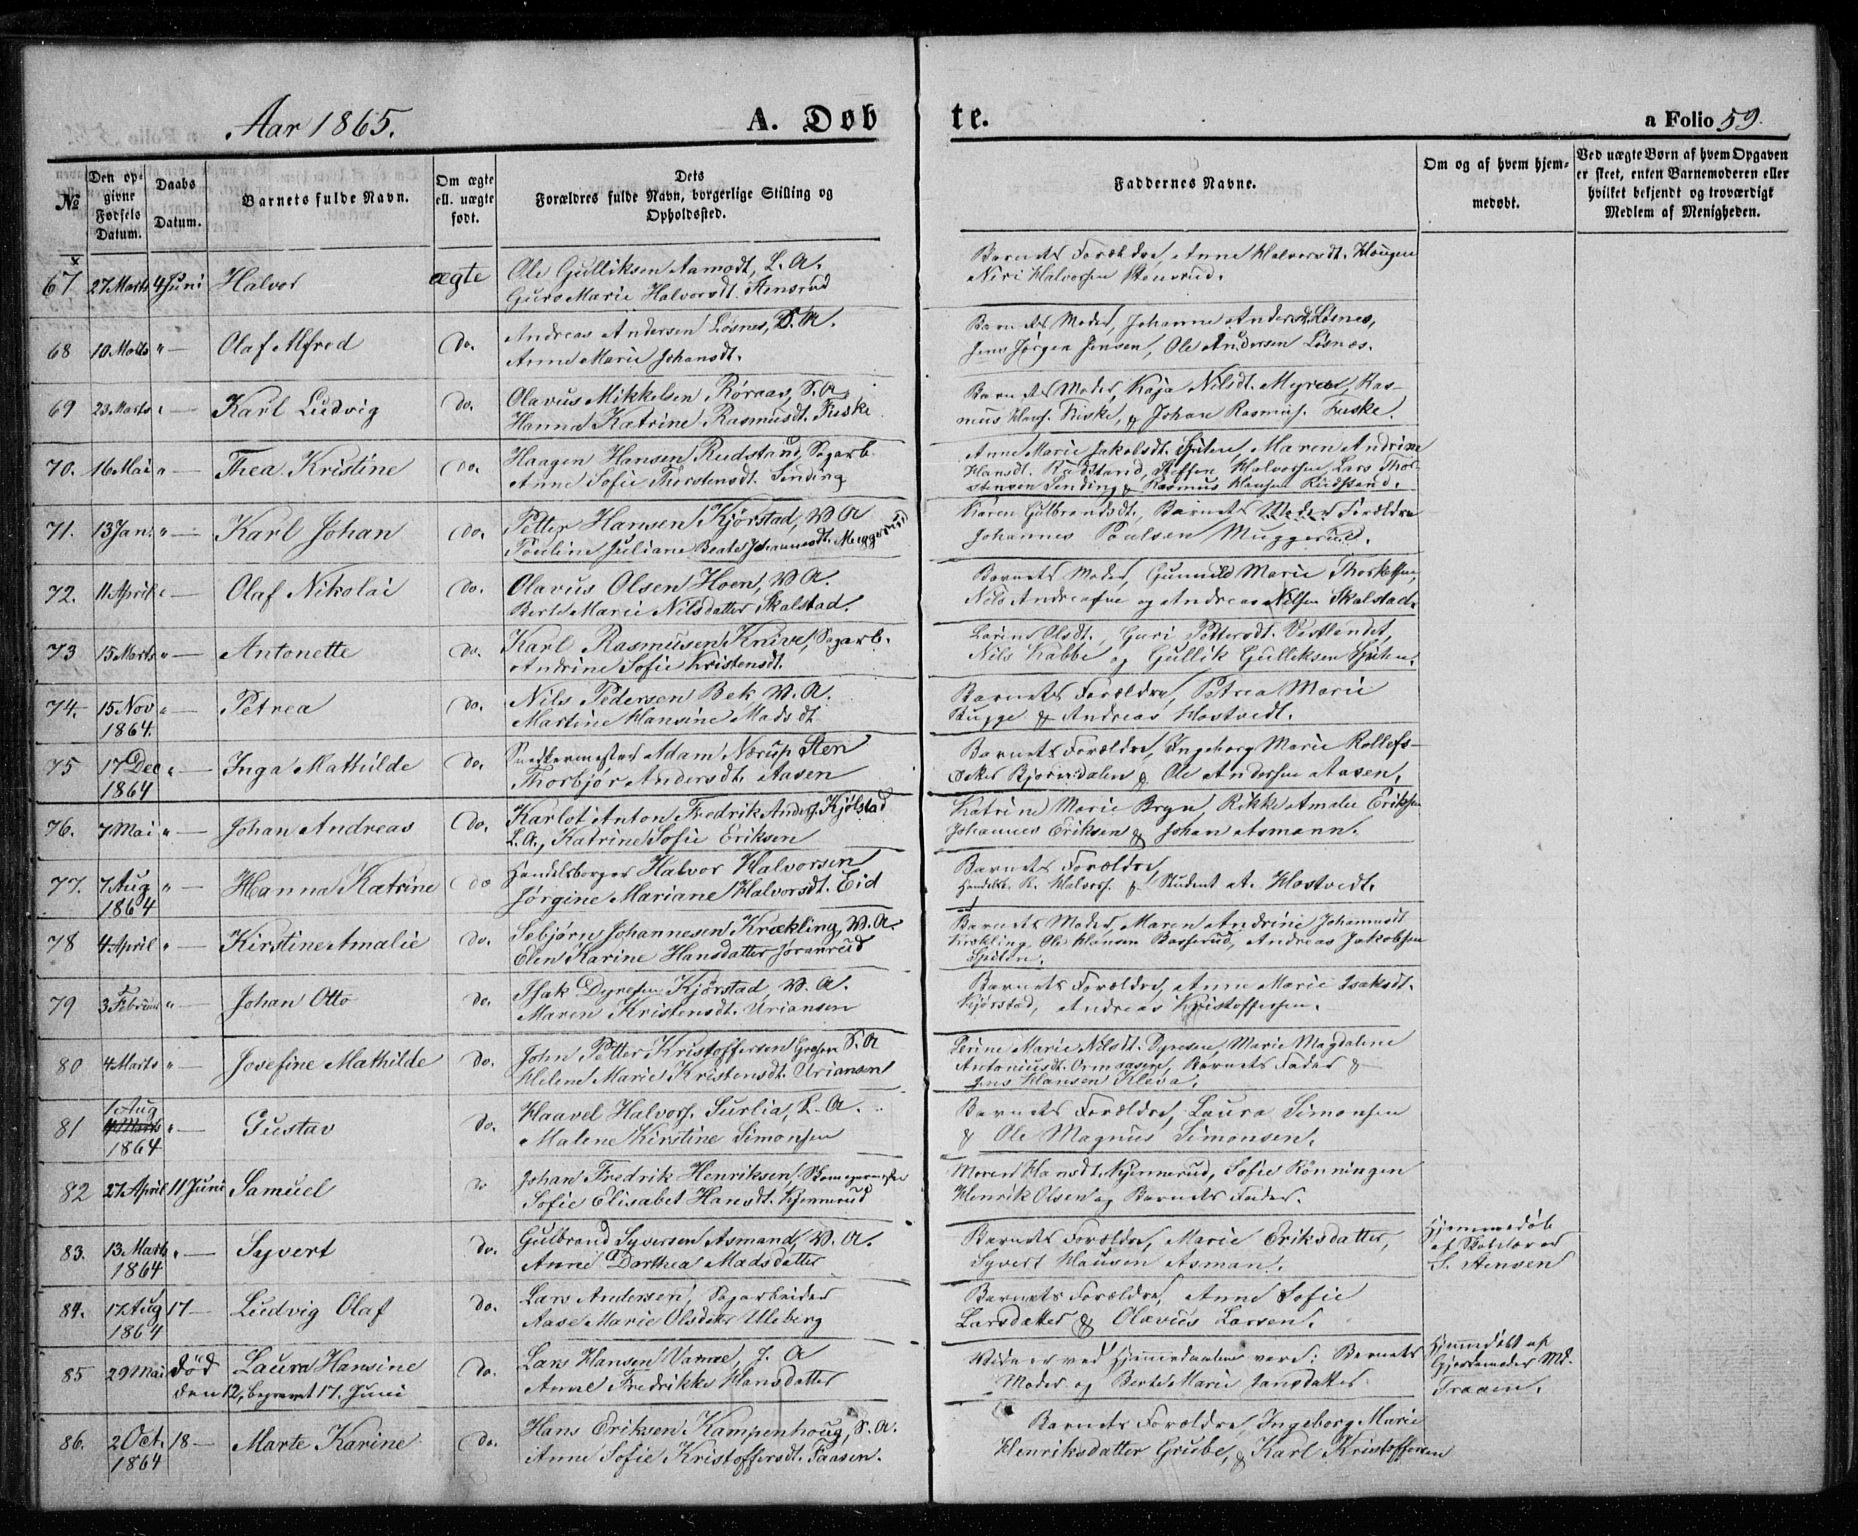 Aar 1865. A. Døbte. a Folio 59.
№ | Den opgivne Fødsels Datum. | Daabs Datum. | Barnets fulde Navn. | Om ægte ell. uægte født. | Dets Forældres fulde Navn, borgerlige Stilling og Opholdssted. | Faddernes Navne. | Om og af hvem hjemmedøbt. | Ved uægte Børn af hvem Opgaven er skeet, enten Barnemoderen eller hvilket bekjendt og troværdigt Medlem af Menigheden.
67 27 Marts 4 Juni Halvor ægte Ole Gulliksen Aamodt, L. A.
Guro Marie Halvorsdt. Stensrud
Barnets Forældre, Anne Halvorsdt. Haugen
Niri Halvorsen Stensrud.
68 10 Marts " — Olaf Alfred do. Andreas Andersen Løsnes, S. A.
Anne Marie Johansdt.
Barnets Moder, Johanne Andersdt. Løsnes,
Jens Jørgen Jensen, Ole Andersen Løsnes.
69 23 Marts " — Karl Ludvig do. Olavus Mikkelsen Røraas, S. A.
Hanna Katrine Rasmusdt. Fiske
Barnets Moder, Kaja Nilsdt. Myren, Ras-
mus Hans. Fiske, & Johan Rasmus. Fiske.
70. 16 Mai " — Thea Kristine do. Haagen Hansen Rudstand, Sagarb.
Anne Sofie Thorstensdt. Sending
Anne Marie Jakobsdt. Spiten, Maren Andrine
Hansdt. Rudstand, Steffen Halvorsen, Lars Thor-
stensen Sending & Rasmus Hansen Rudstand.
71. 13 Jan. " — Karl Johan do. Petter Hansen Kjørstad, V. A
Pouline Juliane Beate Johannesdt. Muggerud
Karen Gulbrandsdt., Barnets Moder Forældre
Johannes Paulsen Muggerud.
72. 11 April " — Olaf Nikolai do. Olavus Olsen Hoen, V. A.
Berte Marie Nilsdatter Skalstad.
Barnets Moder, Gunnild Marie
Nils Andreasen og Andreas Nilsen Skalstad.
73 15 Marts " — Antonette do. Karl Rasmusen Knive, Sagarb.
Andrine Sofie Kristensdt.
Lorine Olsdt., Guri Pettersdt. Vestlandet,
Nils Kabbe og Gullik Gulliksen Spiten.
74. 15 Nov " — Petrea do. Nils Pedersen Bek, V. A.
1864. Martine Hansine Madsdt
Barnets Forældre, Petrea Marie
Bugge & Andreas Hostvedt.
75 17 Dec " — Inga Mathilde do. Snedkermester Adam Nærup Sten
1864 Thorbjør Andersdt. Aasen
Barnets Forældre, Ingeborg Marie Rollefs-
datter Bjørndalen & Ole Andersen Aasen.
76. 7 Mai " — Johan Andreas do. Karlot Anton Fredrik Anders. Kjølstad
L. A., Katrine Sofie Eriksen
Katrine Marie Bryn Rikke Amalie Eriksen
Johannes Eriksen & Johan Asmann.
77. 7 Aug " — Hanna Katrine do Handelsborger Halvor Halvorsen
1864 Jørgine Mariane Halvorsdt. Eid
Barnets Forældre,
Handelsb. K. Halvors. & Student A. Hostvedt.
78 4 April " — Kirstine Amalie do. Sebjørn Johannesen Krækling, V. A.
Elen Karine Hansdatter Joranrud
Barnets Moder, Maren Andrine Johannesdt
Krækling, Ole Hansen Basserud, Andreas Jakobsen
Spiten.
79 3 Februar " — Johan Otto do. Isak Dyresen Kjørstad V. A.
Maren Kristensdt. Uriansen
Barnets Forældre, Anne Marie Isaksdt.
Kjørstad, Andreas Kristoffersen.
80 4 Marts " Josefine Mathilde do. John Petter Kristoffersen S. A
Helene Marie Kristensdt. Uriansen
Perine Marie Nilsdt. Dyresen, Marie Magdalene
Antoniusdt. Ormaasen, Barnets Fader &
Jens Hansen Kleva.
81 1 Aug 4 Marts " — Gustav do. Haavel Halvors. Surlia, L. A.
1864 Malene Kirstine Simonsen
Barnets Forældre, Laura Simonsen
& Ole Magnus Simonsen.
82 27 April 11 Juni Samuel do Johan Fredrik Henriksen, Skomagermester
Sofie Elisabet Hansdt. Kjennerud
Maren Hansdt. Kjennerud, Sofie Rønningen
Henrik Olsen og Barnets Fader.
83. 13 Marts " — Syvert do. Gulbrand Syversen Asmand, V. A.
1864 Anne Dorthea Madsdatter
Barnets Forældre, Marie Eriksdatter,
Syvert Hansen Asman.
Hjemmedøb
af Skolelærer
S. Stensen
84. 17 Aug 17 — Ludvig Olaf do. Lars Andersen, Sagarbeider
1864 Aase Marie Olsdatter Uleberg
Barnets Forældre, Anne Sofie
Larsdatter & Olavus Larsen.
85 29 Mai død Laura Hansine do. Lars Hansen Varnæ, J. A
den 12, begravet 17. Juni Anne Fredrikke Hansdatter
Vidner ved Hjemmedaaben vare: Barnets
Moder og Berte Marie Hansdatter
Hjemmedøbt af
Gjordemoder M.
Traaen.
86. 2 Oct. 18 — Marte Karine do. Hans Eriksen Kampenhoug, S. A.
1864 Anne Sofie Kristoffersdt. Faasen.
Barnets Forældre, Ingeborg Marie
Henriksdatter Grube, & Karl Kristoffersen